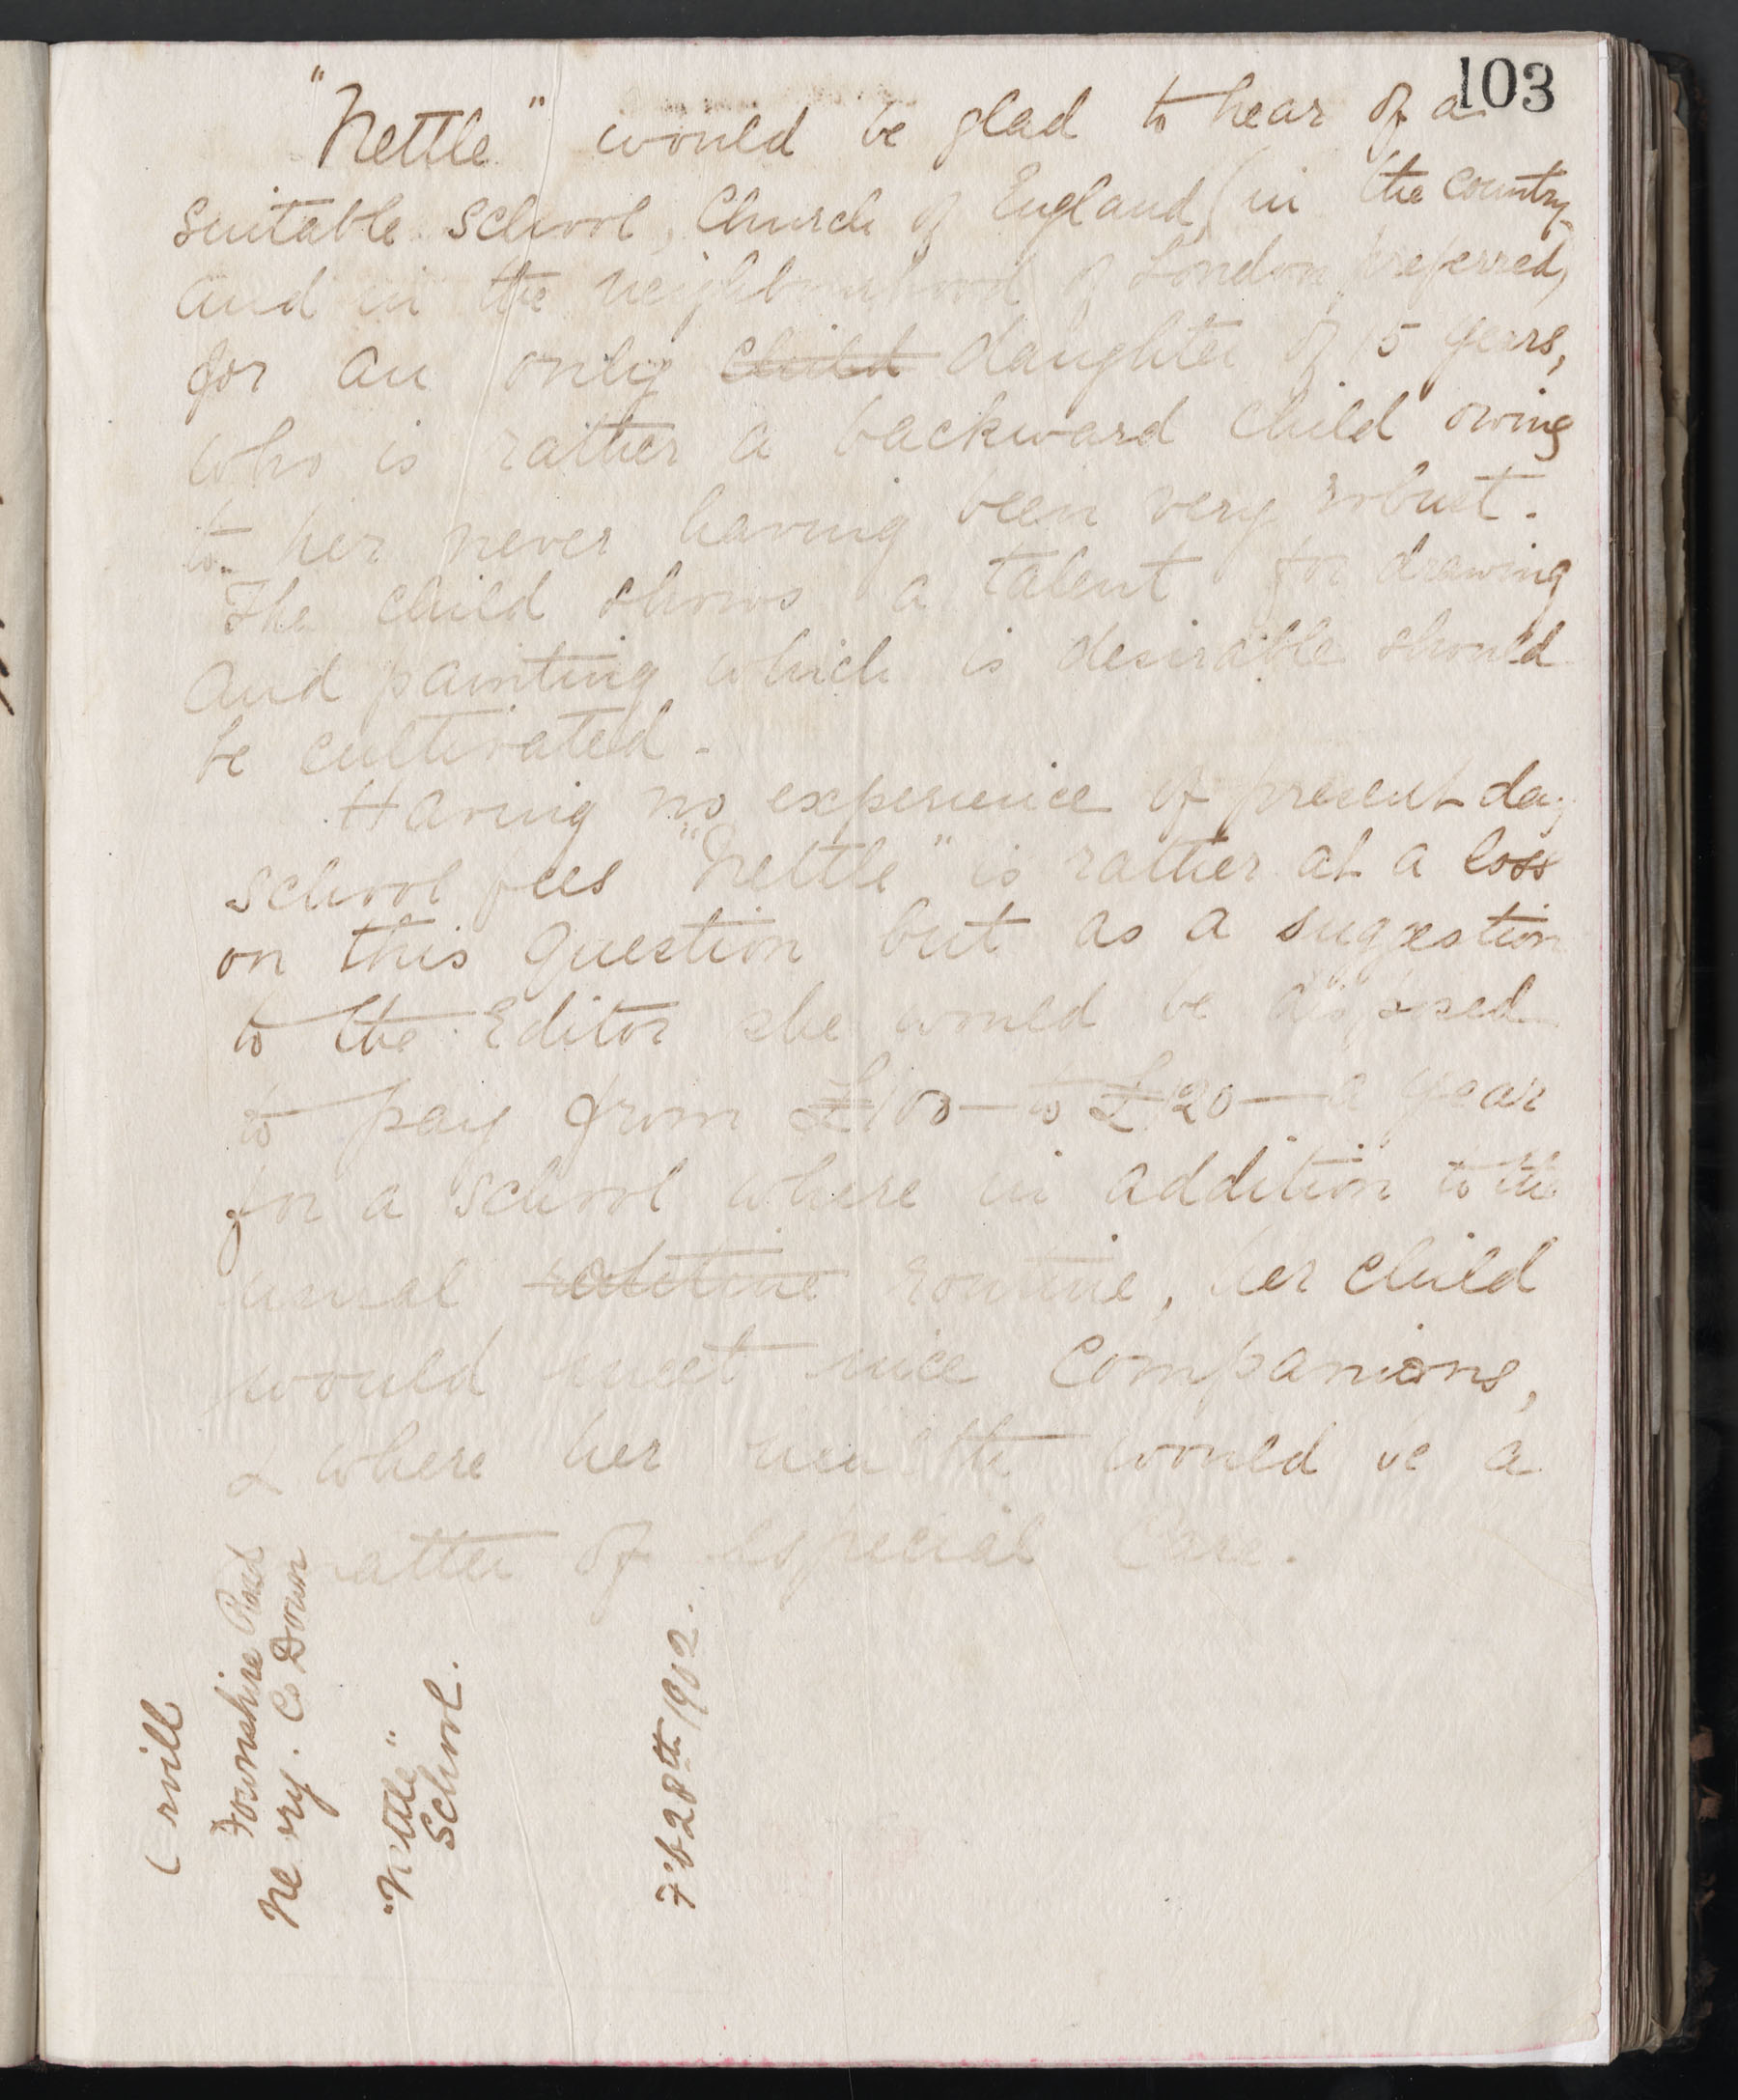 103
"Nettle" would be glad to hear of a
suitable school, Church of England, (in the country
and in the neighbourhood of London preferred)
for an only child daughter of 15 years,
who is rather a backward child owing
to her never having been very robust.
The child shows a talent for drawing
and painting which is desirable should
be cultivated -
Having no experience of present day
school fees "Nettle" is rather at a loss
on this question but as a suggestion
to the Editor she would be disposed
to pay from £100 — to £120 — a year
for a school where in addition to the
usual routine, her child
would meet nice companions,
& where her would be a
atter of especial care.
rville
Downshire Road
Ne ry. Co Down
"Nettle"
School.
Feb 28th 1902.